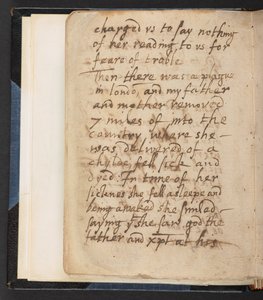 charged us to say nothing
of her reading to us for
feare of troble
Then there was a plague
in londō, and my father
and mother removed
7 miles of into the
countrey, where she
was delivered of a
childe, fell sick and
died. In time of her
sicknes she fell asleepe and
being awaked she smiled
saying yt she saw god the
father and xpt at his